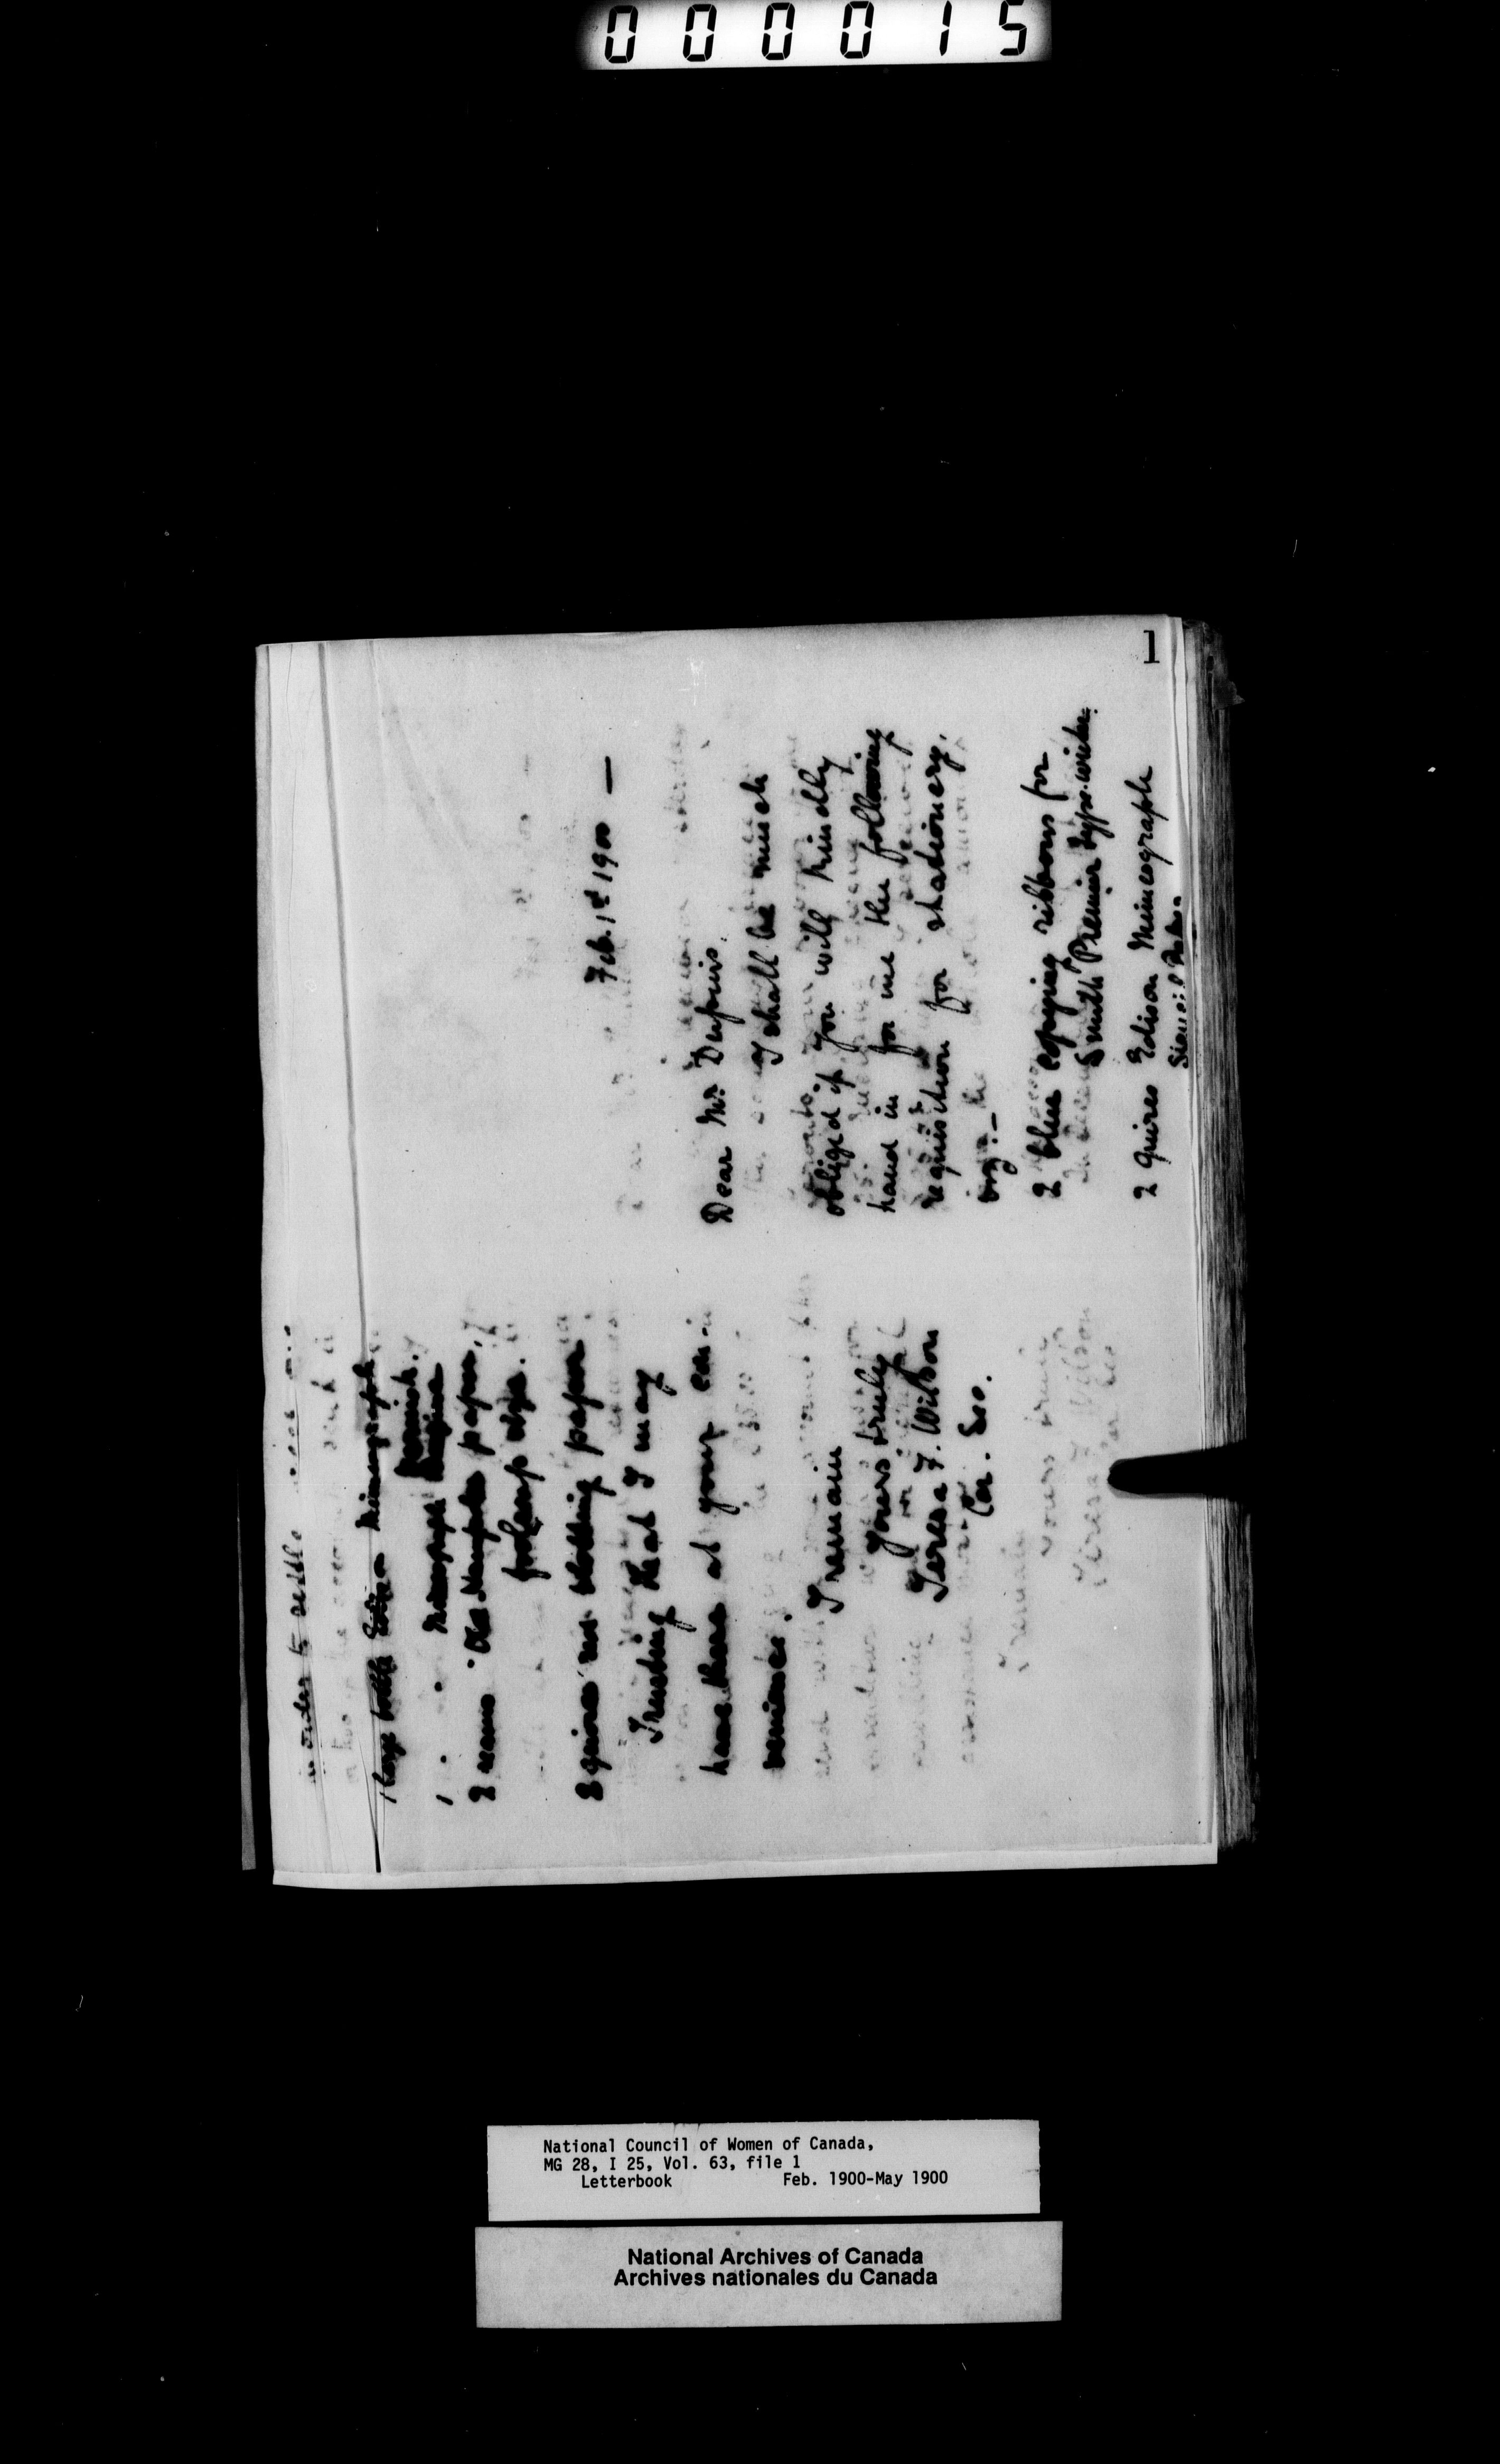 000015
1
Feb. 1st 1900 —
Dear Mr. Dupuis.
I shall be much
obliged if you will kindly
hand in for me the following
requisition for stationery.
viz:—
2 blue copying ribbons for
Smith Premier Type-writer.
2 quires Edison Mimeograph
Stencil
in order to settle
1 large bottle Edison Mimeograph
varnish.
1 " " Mimeograph
2 reams paper,
foolscap size.
2 quires red blotting paper
Trusting that I may
have these at your con-
venience.
I remain
yours truly
Teresa F. Wilson
Cor. Sec.
National Council of Women of Canada,
MG 28, I 25, Vol. 63, file 1
Letterbook Feb. 1900-May 1900
National Archives of Canada
Archives nationales du Canada